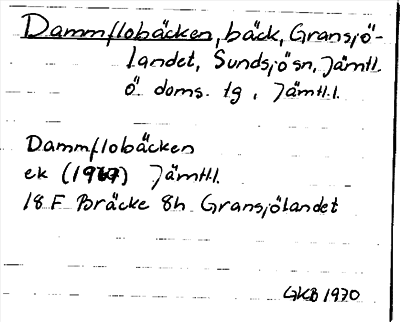 Dammflobäcken, bäck, Gransjö-
landet, Sundsjö sn, Jämtl.
ö doms. tg, Jämtl.l.
Dammflobäcken
ek (1967) Jämtl.l.
18 F Bräcke 8h Gransjölandet
GKB 1970